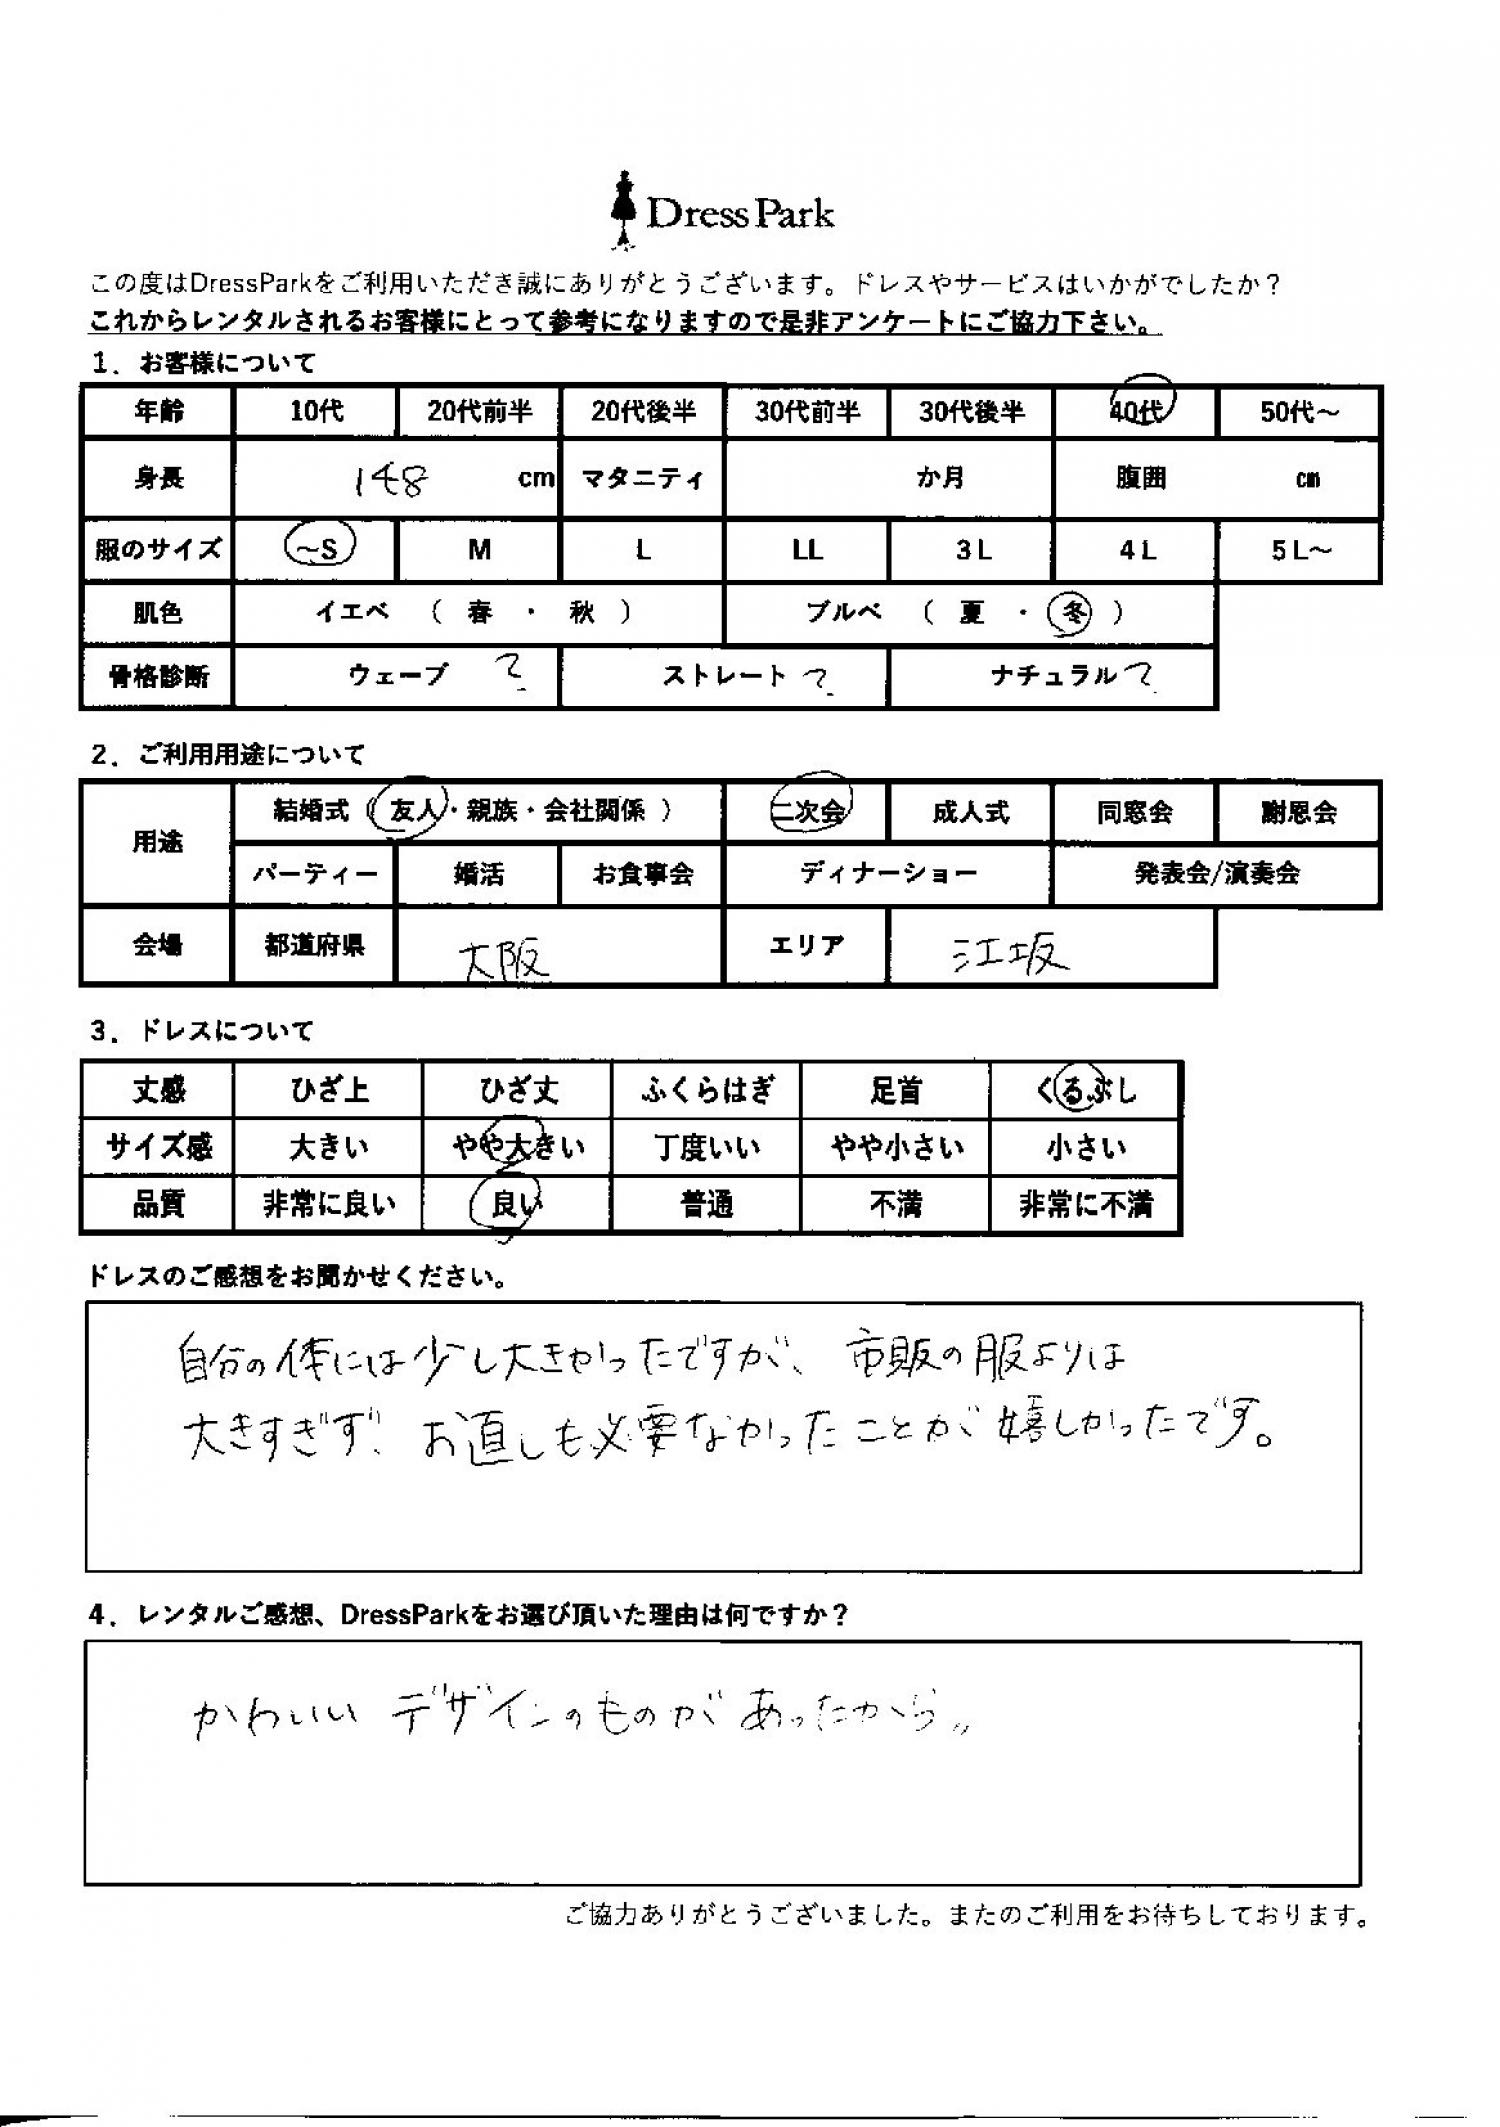 Dress Park
この度はDressParkをご利用いただき誠にありがとうございます。ドレスやサービスはいかがでしたか？
これからレンタルされるお客様にとって参考になりますので是非アンケートにご協力下さい。
1．お客様について
年齢 10代 20代前半 20代後半 30代前半 30代後半 40代 50代～
身長 148 cm マタニティ か月 腹囲 cm
服のサイズ ～S M L LL 3L 4L 5L～
肌色 イエベ （ 春 ・ 秋 ） ブルベ （ 夏 ・ 冬 ）
骨格診断 ウェーブ ? ストレート ? ナチュラル ?
2．ご利用用途について
用途 結婚式（ 友人・親族・会社関係 ） 二次会 成人式 同窓会 謝恩会
パーティー 婚活 お食事会 ディナーショー 発表会/演奏会
会場 都道府県 大阪 エリア 江坂
3．ドレスについて
丈感 ひざ上 ひざ丈 ふくらはぎ 足首 くるぶし
サイズ感 大きい やや大きい 丁度いい やや小さい 小さい
品質 非常に良い 良い 普通 不満 非常に不満
ドレスのご感想をお聞かせください。
自分の体には少し大きかったですが、市販の服よりは
大きすぎず、お直しも必要なかったことが嬉しかったです。
4．レンタルご感想、DressParkをお選び頂いた理由は何ですか？
かわいいデザインのものがあったから。
ご協力ありがとうございました。またのご利用をお待ちしております。